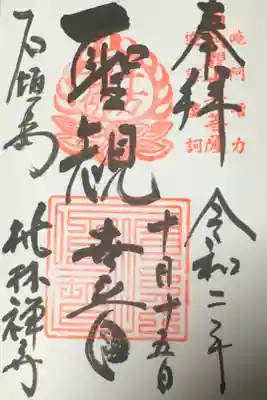 奉拝
令和二年
十月十五日
聖観世音
石垣島
桃林禅寺